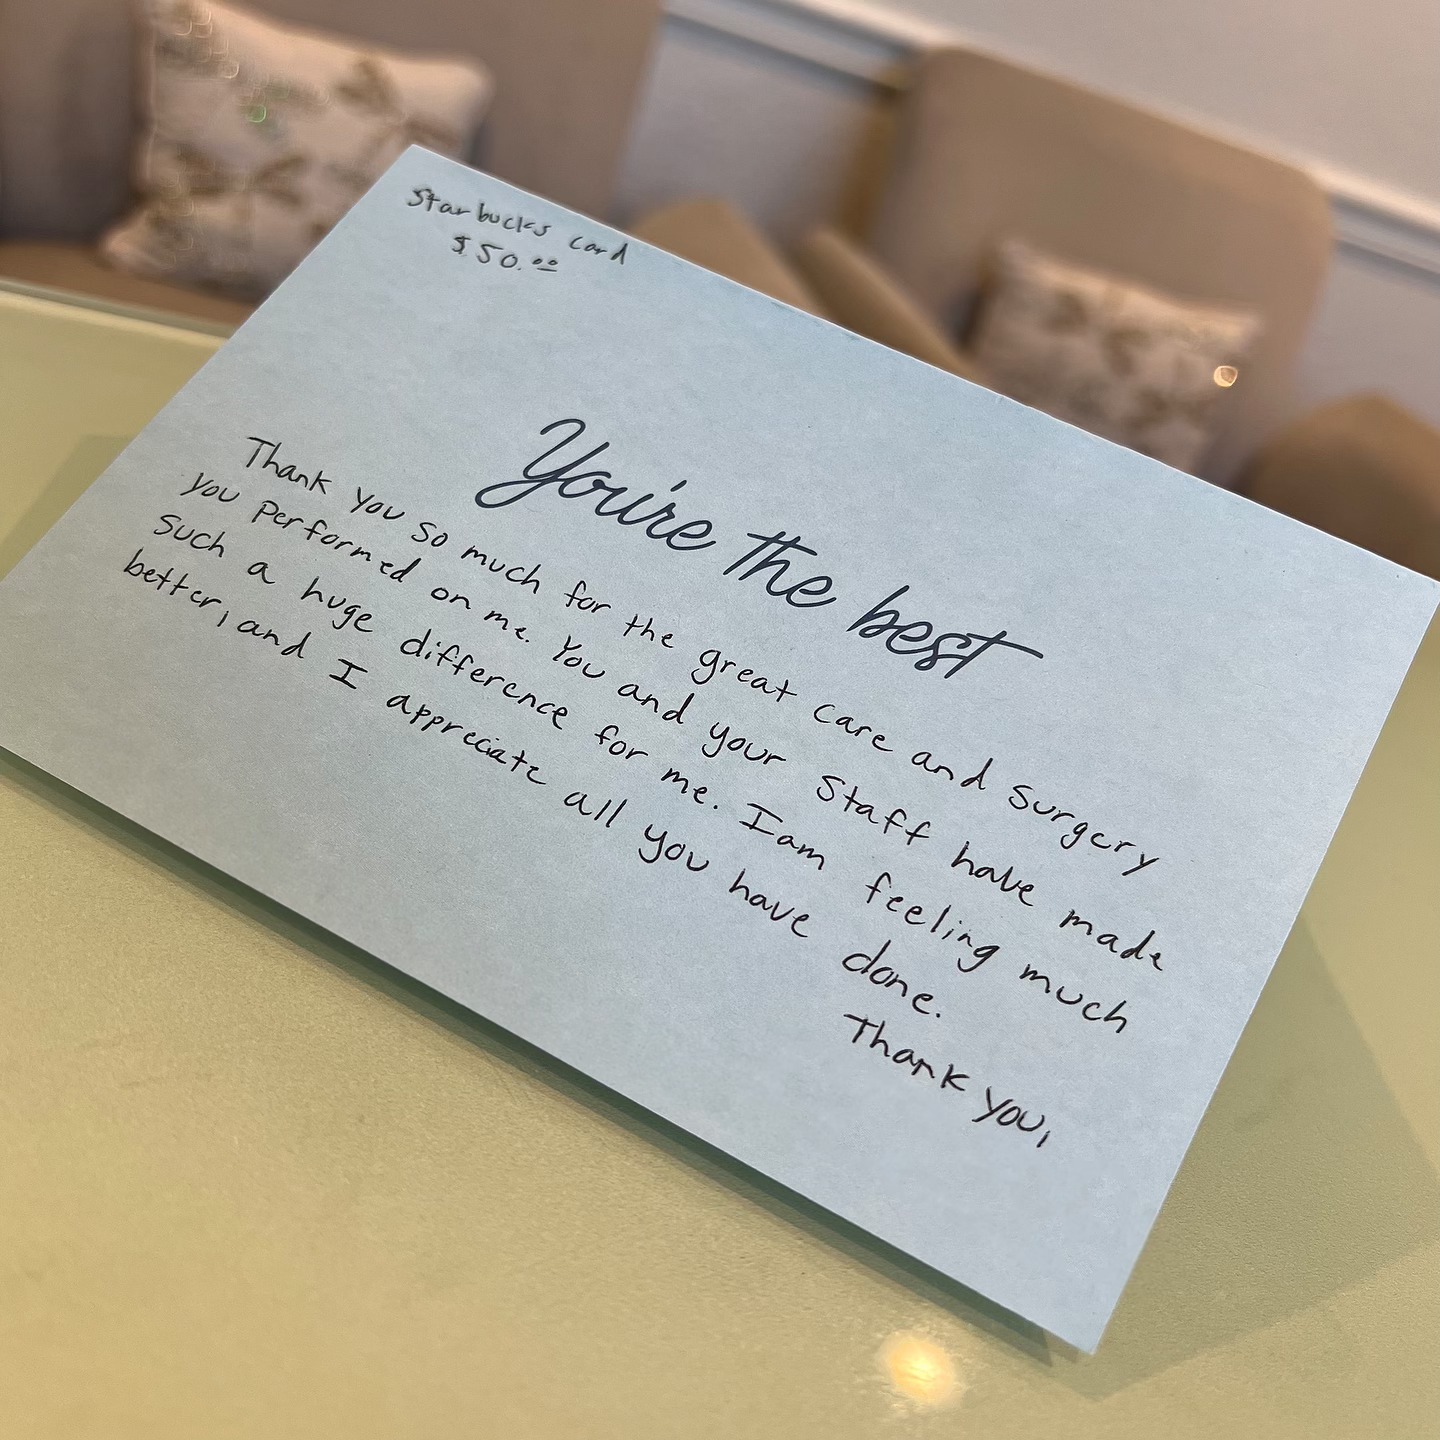 Starbucks card
$50.00
You're the best
Thank you so much for the great care and surgery
you performed on me. You and your staff have made
such a huge difference for me. I am feeling much
better, and I appreciate all you have done.
Thank you,